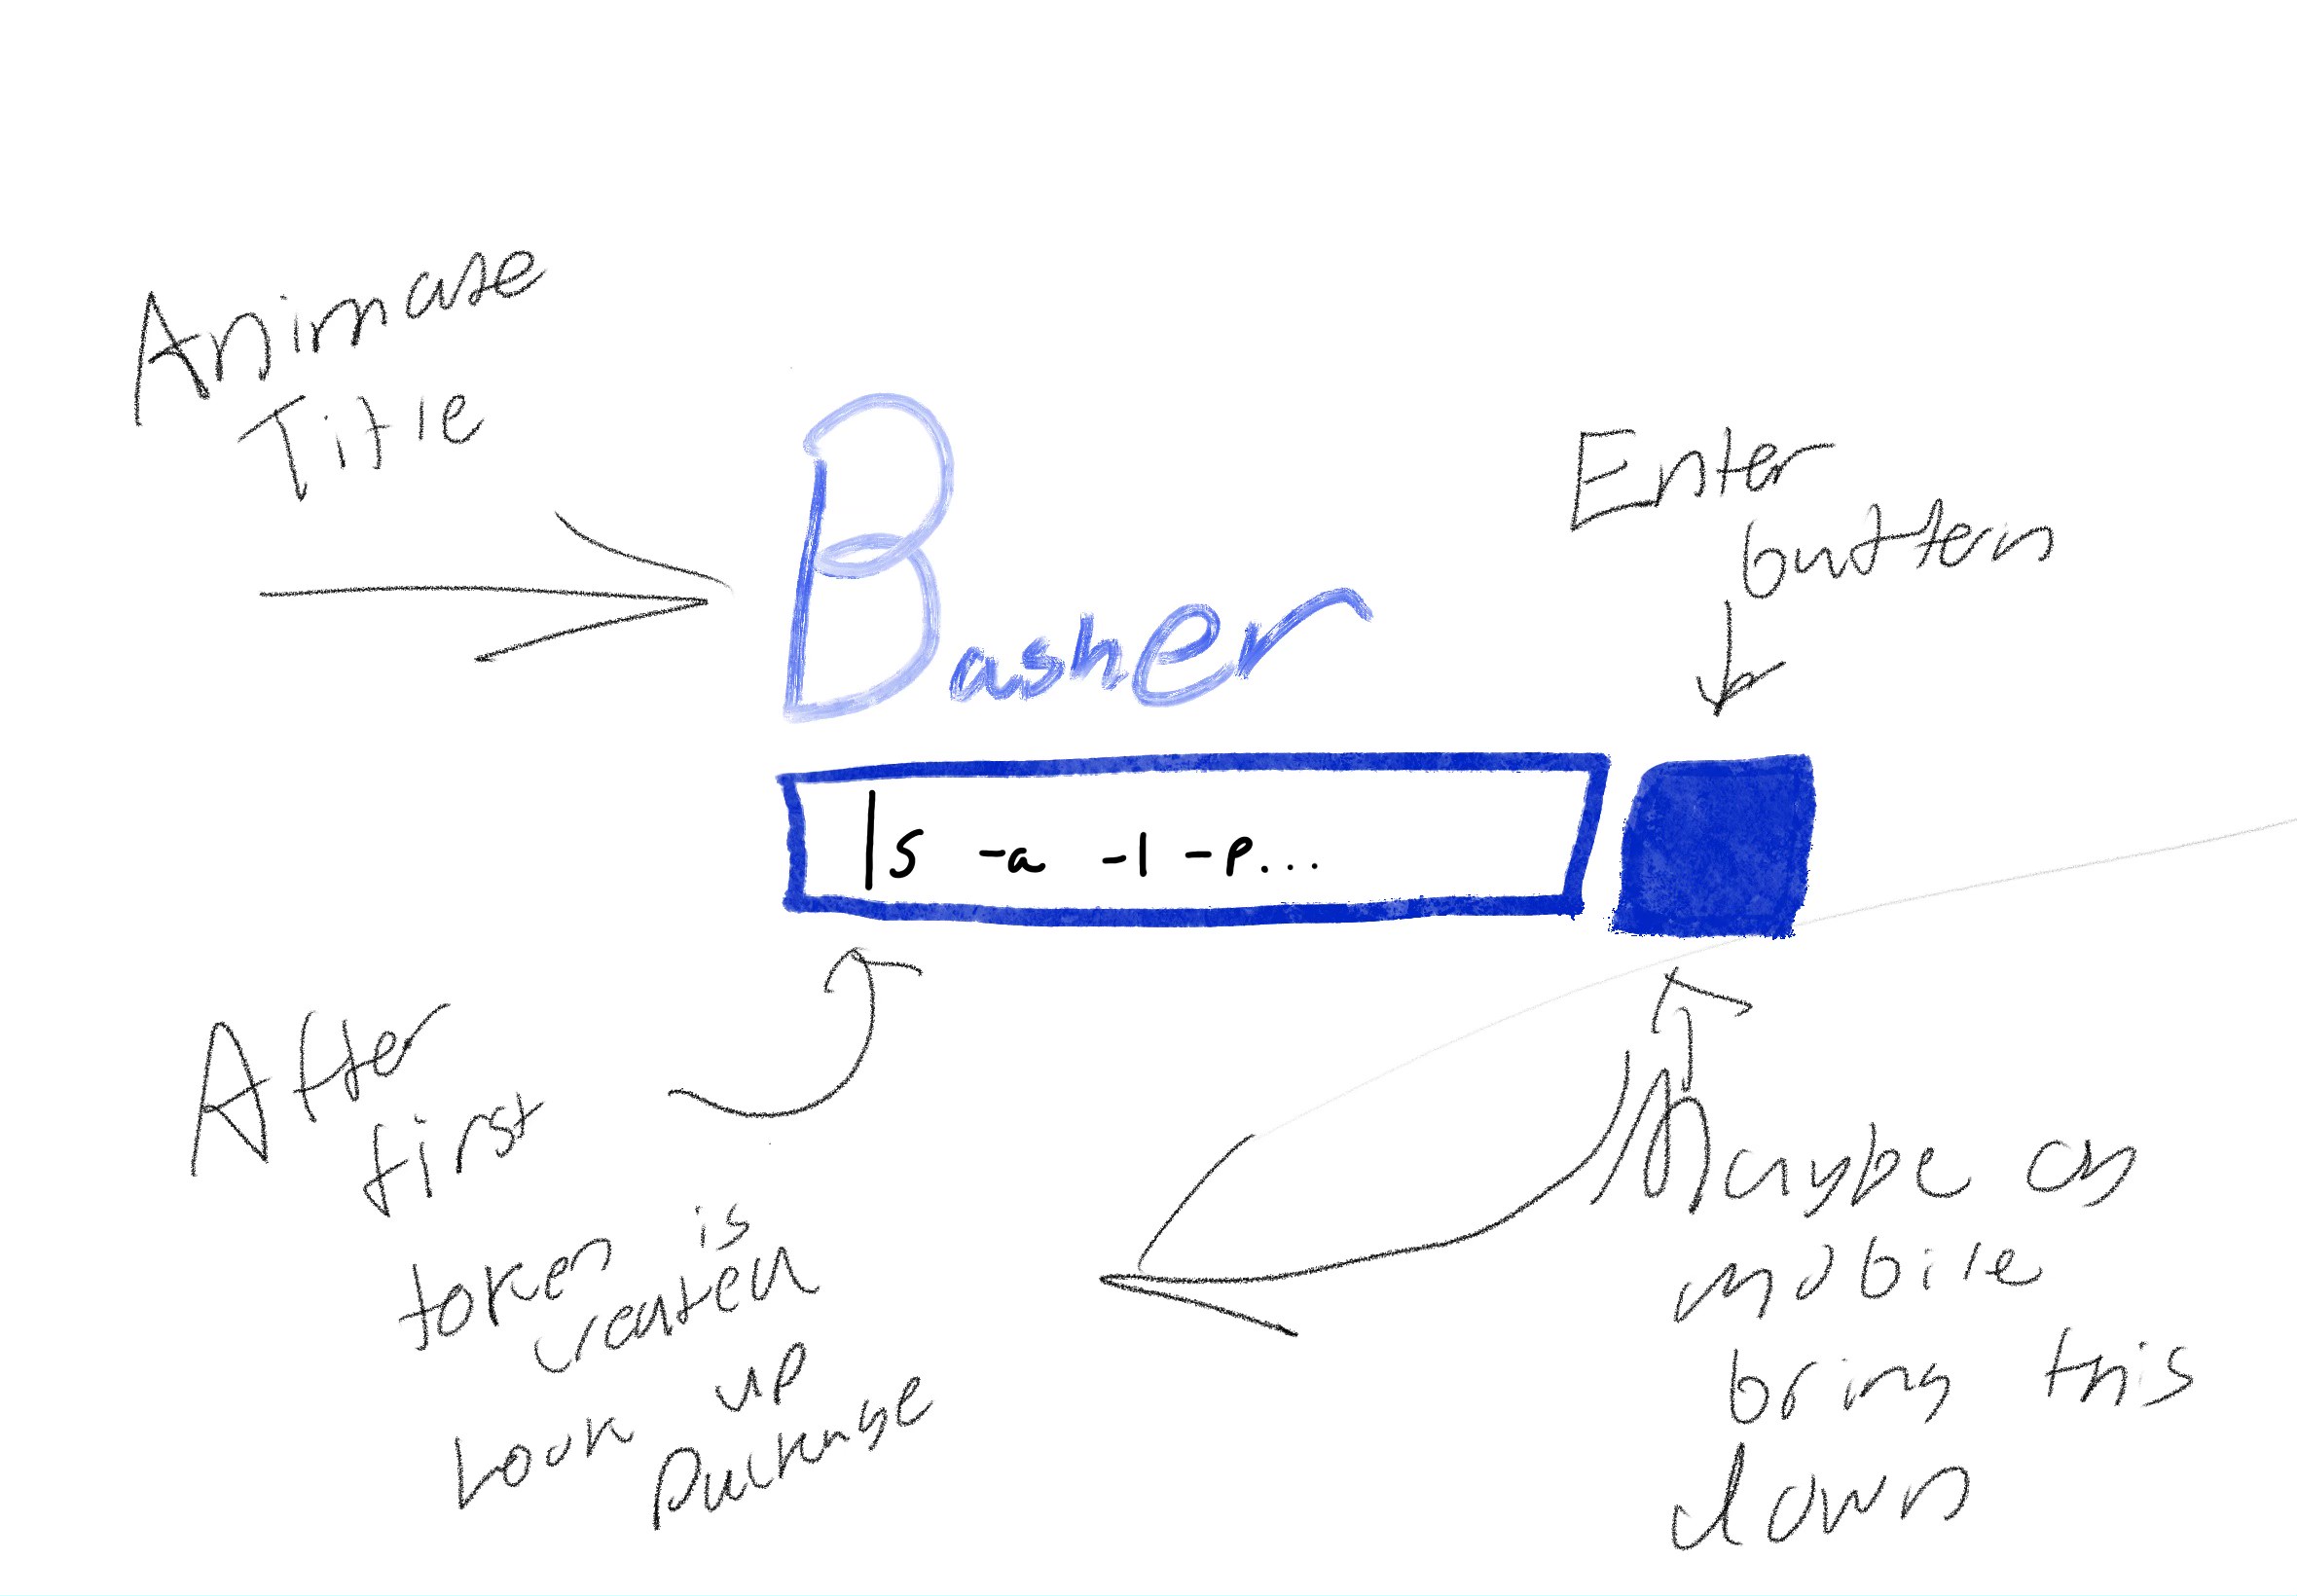 Animate
Title
Basher
Enter
button
ls -a -l -p...
After
first
token is
created
Look up
package
Maybe on
mobile
bring this
down